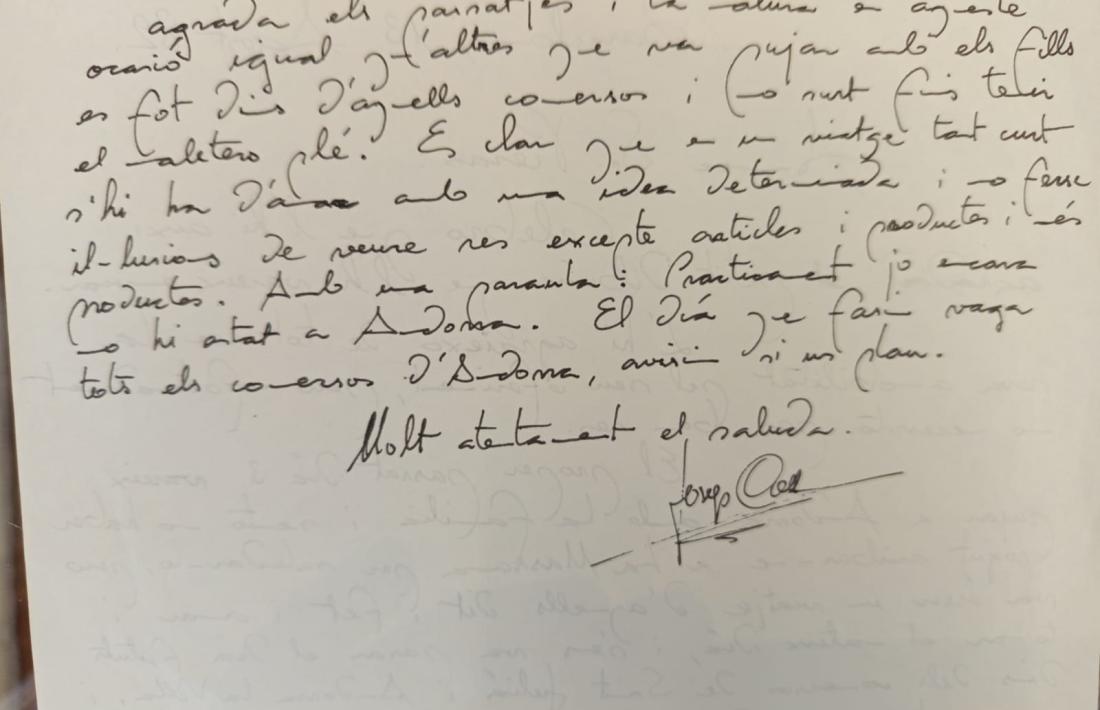 agrada els paisatjes i la natura en aqueste
ocasió igual q. d'altres que va pujar amb els fills
es fot dins d'aquells comersos i no surt fins tenir
el maletero plé. Es clar que en un viatge tant curt
s'hi ha d'anar amb una idea determinada i no ferse
il-lusions de veure res excepte articles i productes i més
productes. Amb una paraula: Practicament jo encara
no hi estat a Andorra. El día que fasin vaga
tots els comersos d'Andorra, avisin si us plau.
Molt atentament el saluda.
Josep